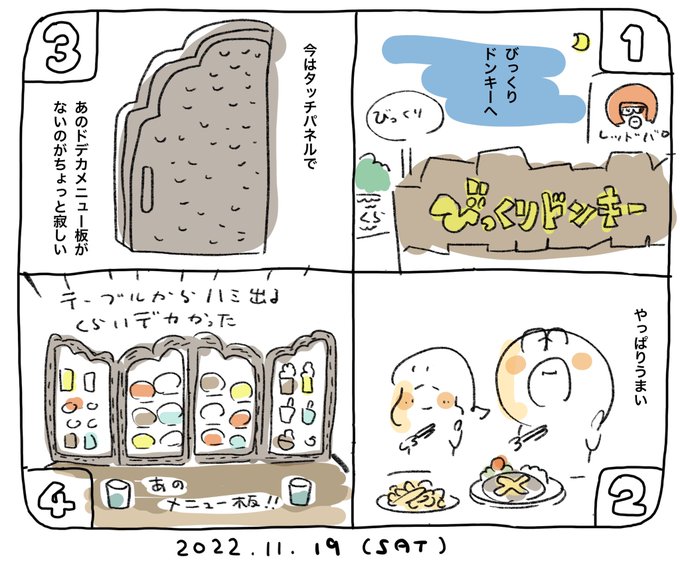 1
びっくり
ドンキーへ
びっくり
レッドバロ
くら
びっくりドンキー
2
やっぱりうまい
3
今はタッチパネルで
あのドデカメニュー板が
ないのがちょっと寂しい
4
テーブルからハミ出る
くらいデカかった
あの
メニュー板!!
2022.11.19 (SAT)